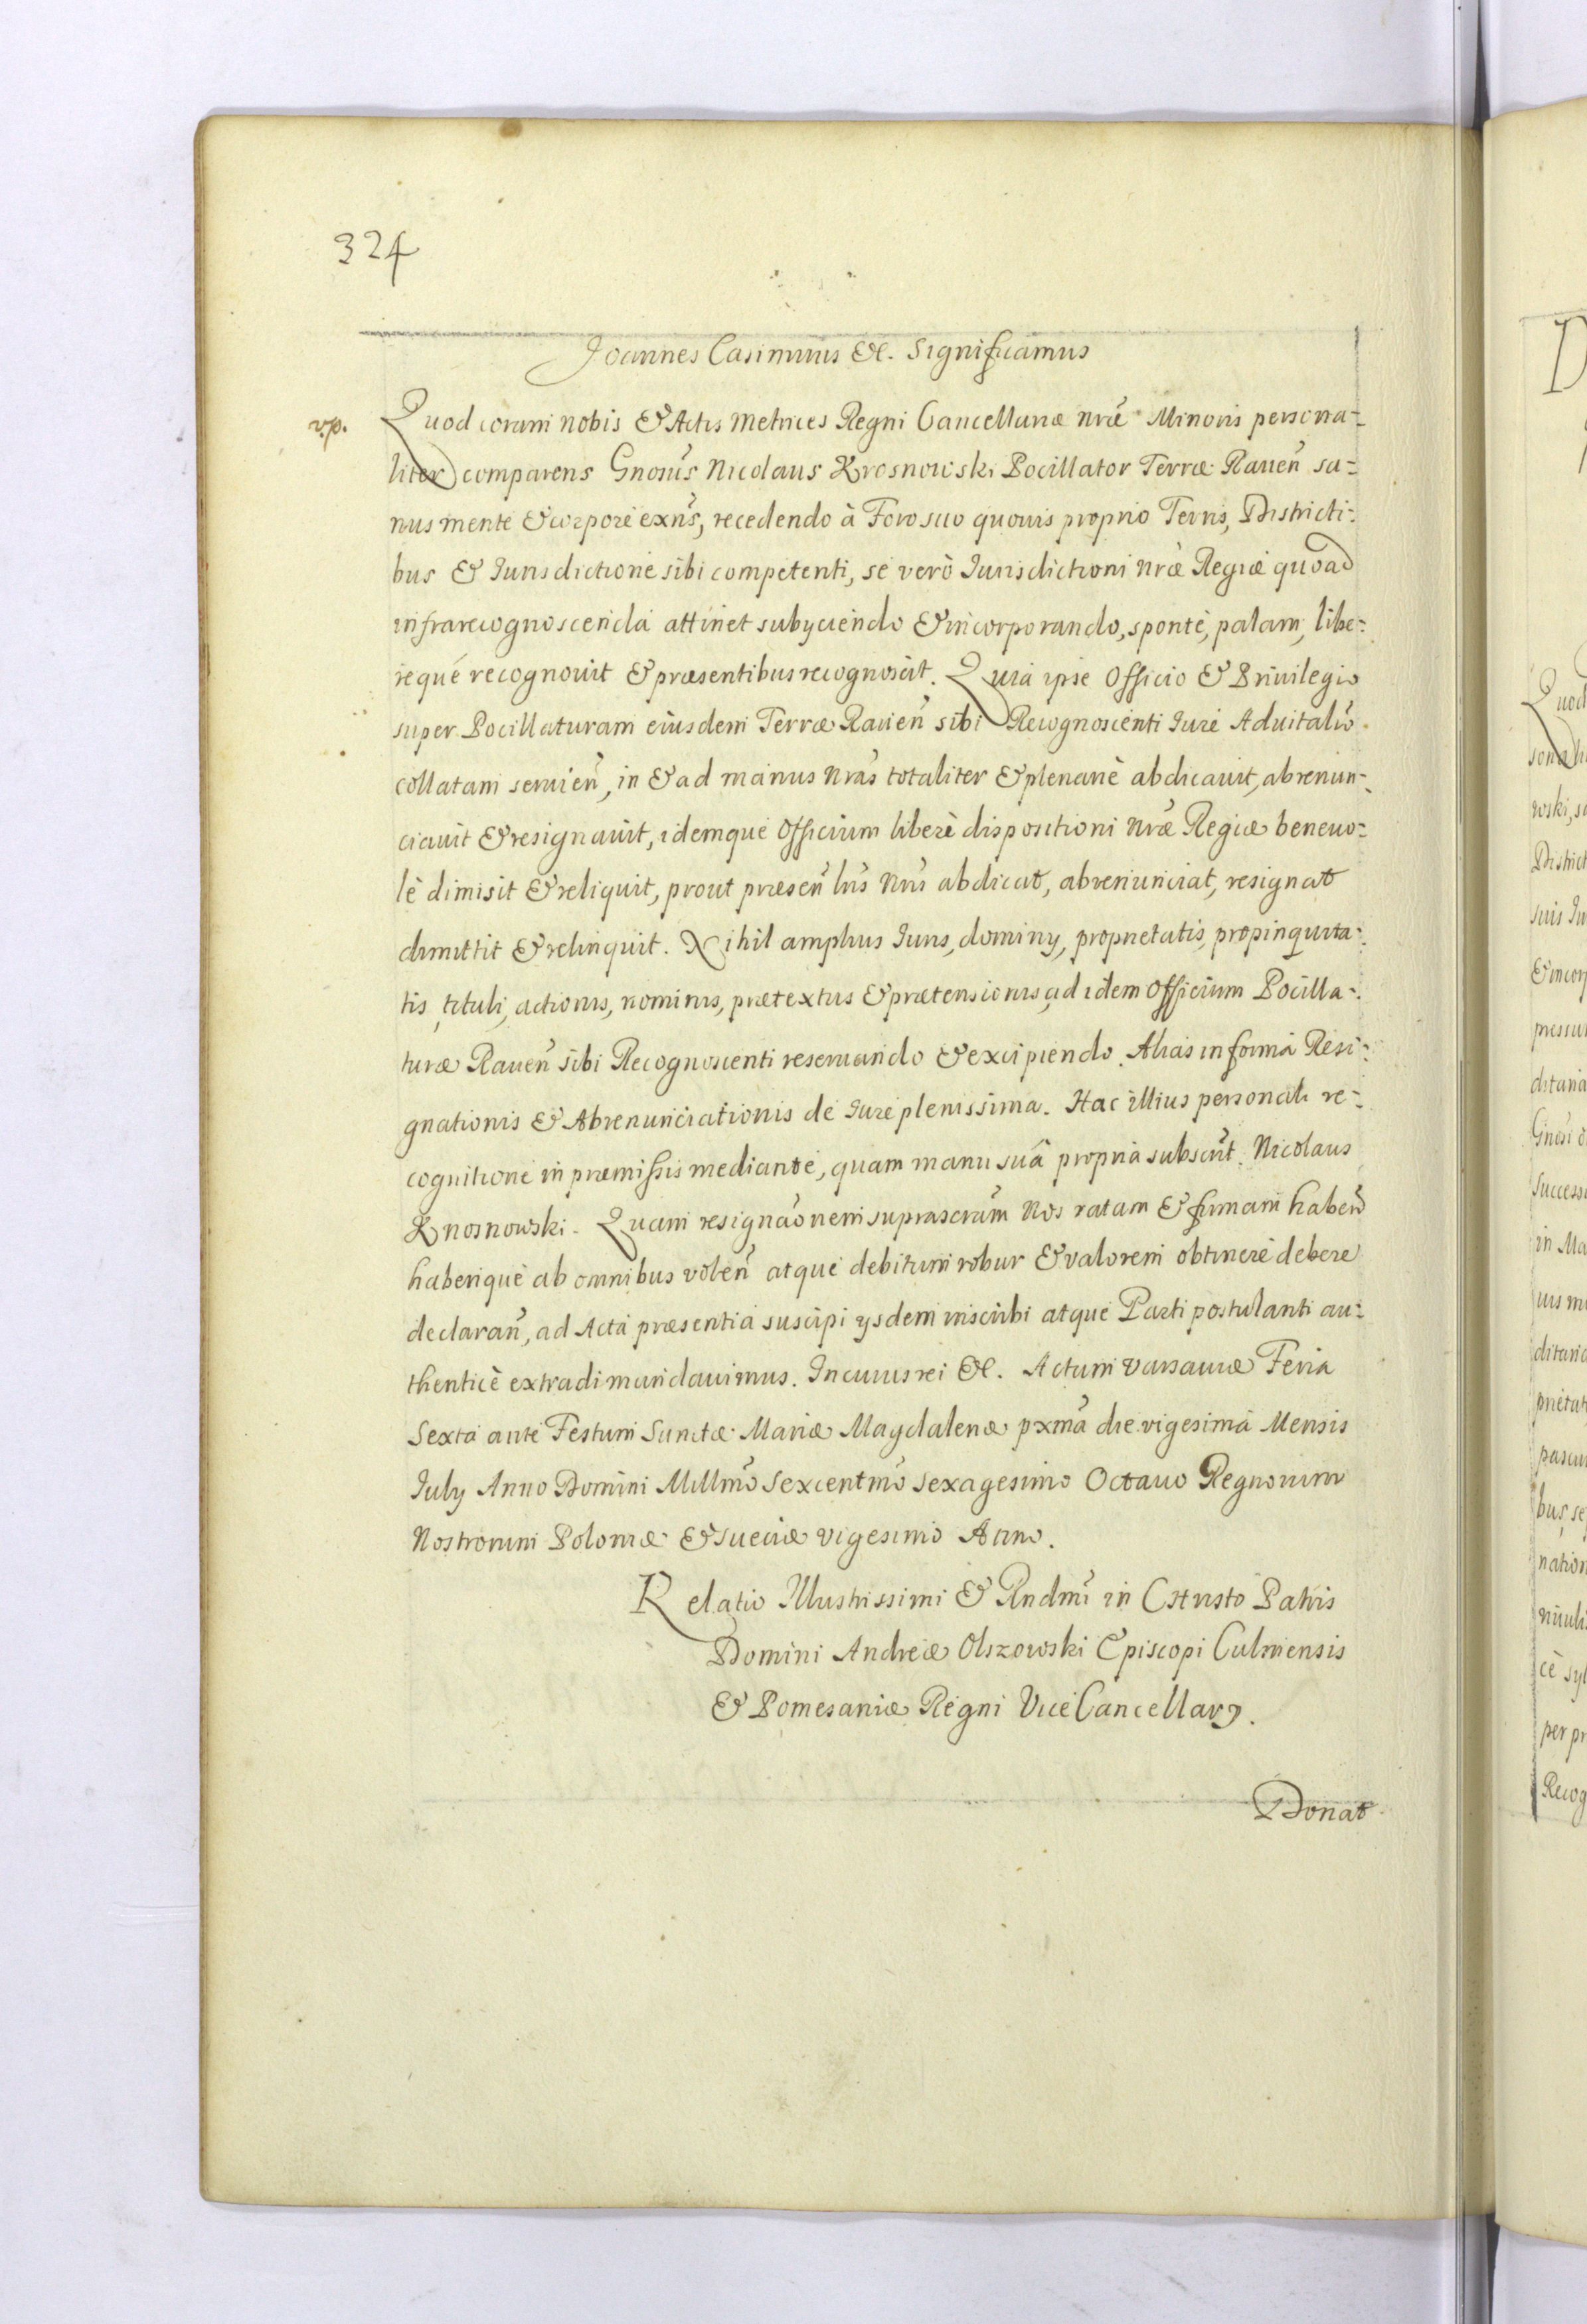 324
Joannes Casimirus &c. Significamus
v.p.
Quod coram nobis & Actis Metrices Regni Cancellariæ nr̃æ Minoris persona-
liter comparens Gnosũs Nicolaus Krosnowski Pocillator Terræ Raueñ sa-
nus mente & corpore exñs, recedendo à Foro suo quouis proprio Terris, Districti-
bus & Jurisdictione sibi competenti, se verò Jurisdictioni nr̃æ Regiæ quoad
infrarecognoscenda attinet subyciendo & incorporando, sponte, palam, libe-
reque recognouit & præsentibus recognoscit. Quia ipse Officio & Priuilegio
super Pocillaturam eiusdem Terræ Raueñ sibi Recognoscenti Jure Aduitalio
collatam seruieñ, in & ad manus nr̃as totaliter & plenariè abdicauit, abrenun-
ciauit & resignauit, idemque Officium liberè dispositioni nr̃æ Regiæ beneuo-
lè dimisit & reliquit, prout præseñ lr̃is nr̃is abdicat, abrenunciat, resignat
dimittit & relinquit. Nihil amplius Juris, dominy, proprietatis, propinquita-
tis, tituli, actionis, nominis, prætextus & prætensionis, ad idem Officium Pocilla-
turæ Raueñ sibi Recognoscenti reseruando & excipiendo. Alias in forma Resi-
gnationis & Abrenunciationis de Jure plenissima. Hac illius personali re-
cognitione in præmissis mediante, quam manu suâ propria subscrit̃. Nicolaus
Knosnowski. Quam resignãonem suprascram̃ Nos ratam & firmam habeñ
haberique ab omnibus voleñ atque debitum robur & valorem obtinere debere
declarañ, ad Acta præsentia suscipi ysdem inscribi atque Parti postulanti au-
thenticè extradi mandauimus. In cuius rei &c. Actum Varsauiæ Feria
Sexta ante Festum Sanctæ Mariæ Magdalenæ pxmã die vigesima Mensis
July Anno Domini Millmõ Sexcentmõ sexagesimo Octauo Regnorum
Nostrorum Poloniæ & Sueciæ vigesimo Anno.
Relatio Illustrissimi & Rndmĩ in CHristo Patris
Domini Andreæ Olszowski Episcopi Culmensis
& Pomesaniæ Regni ViceCancellary.
Donat